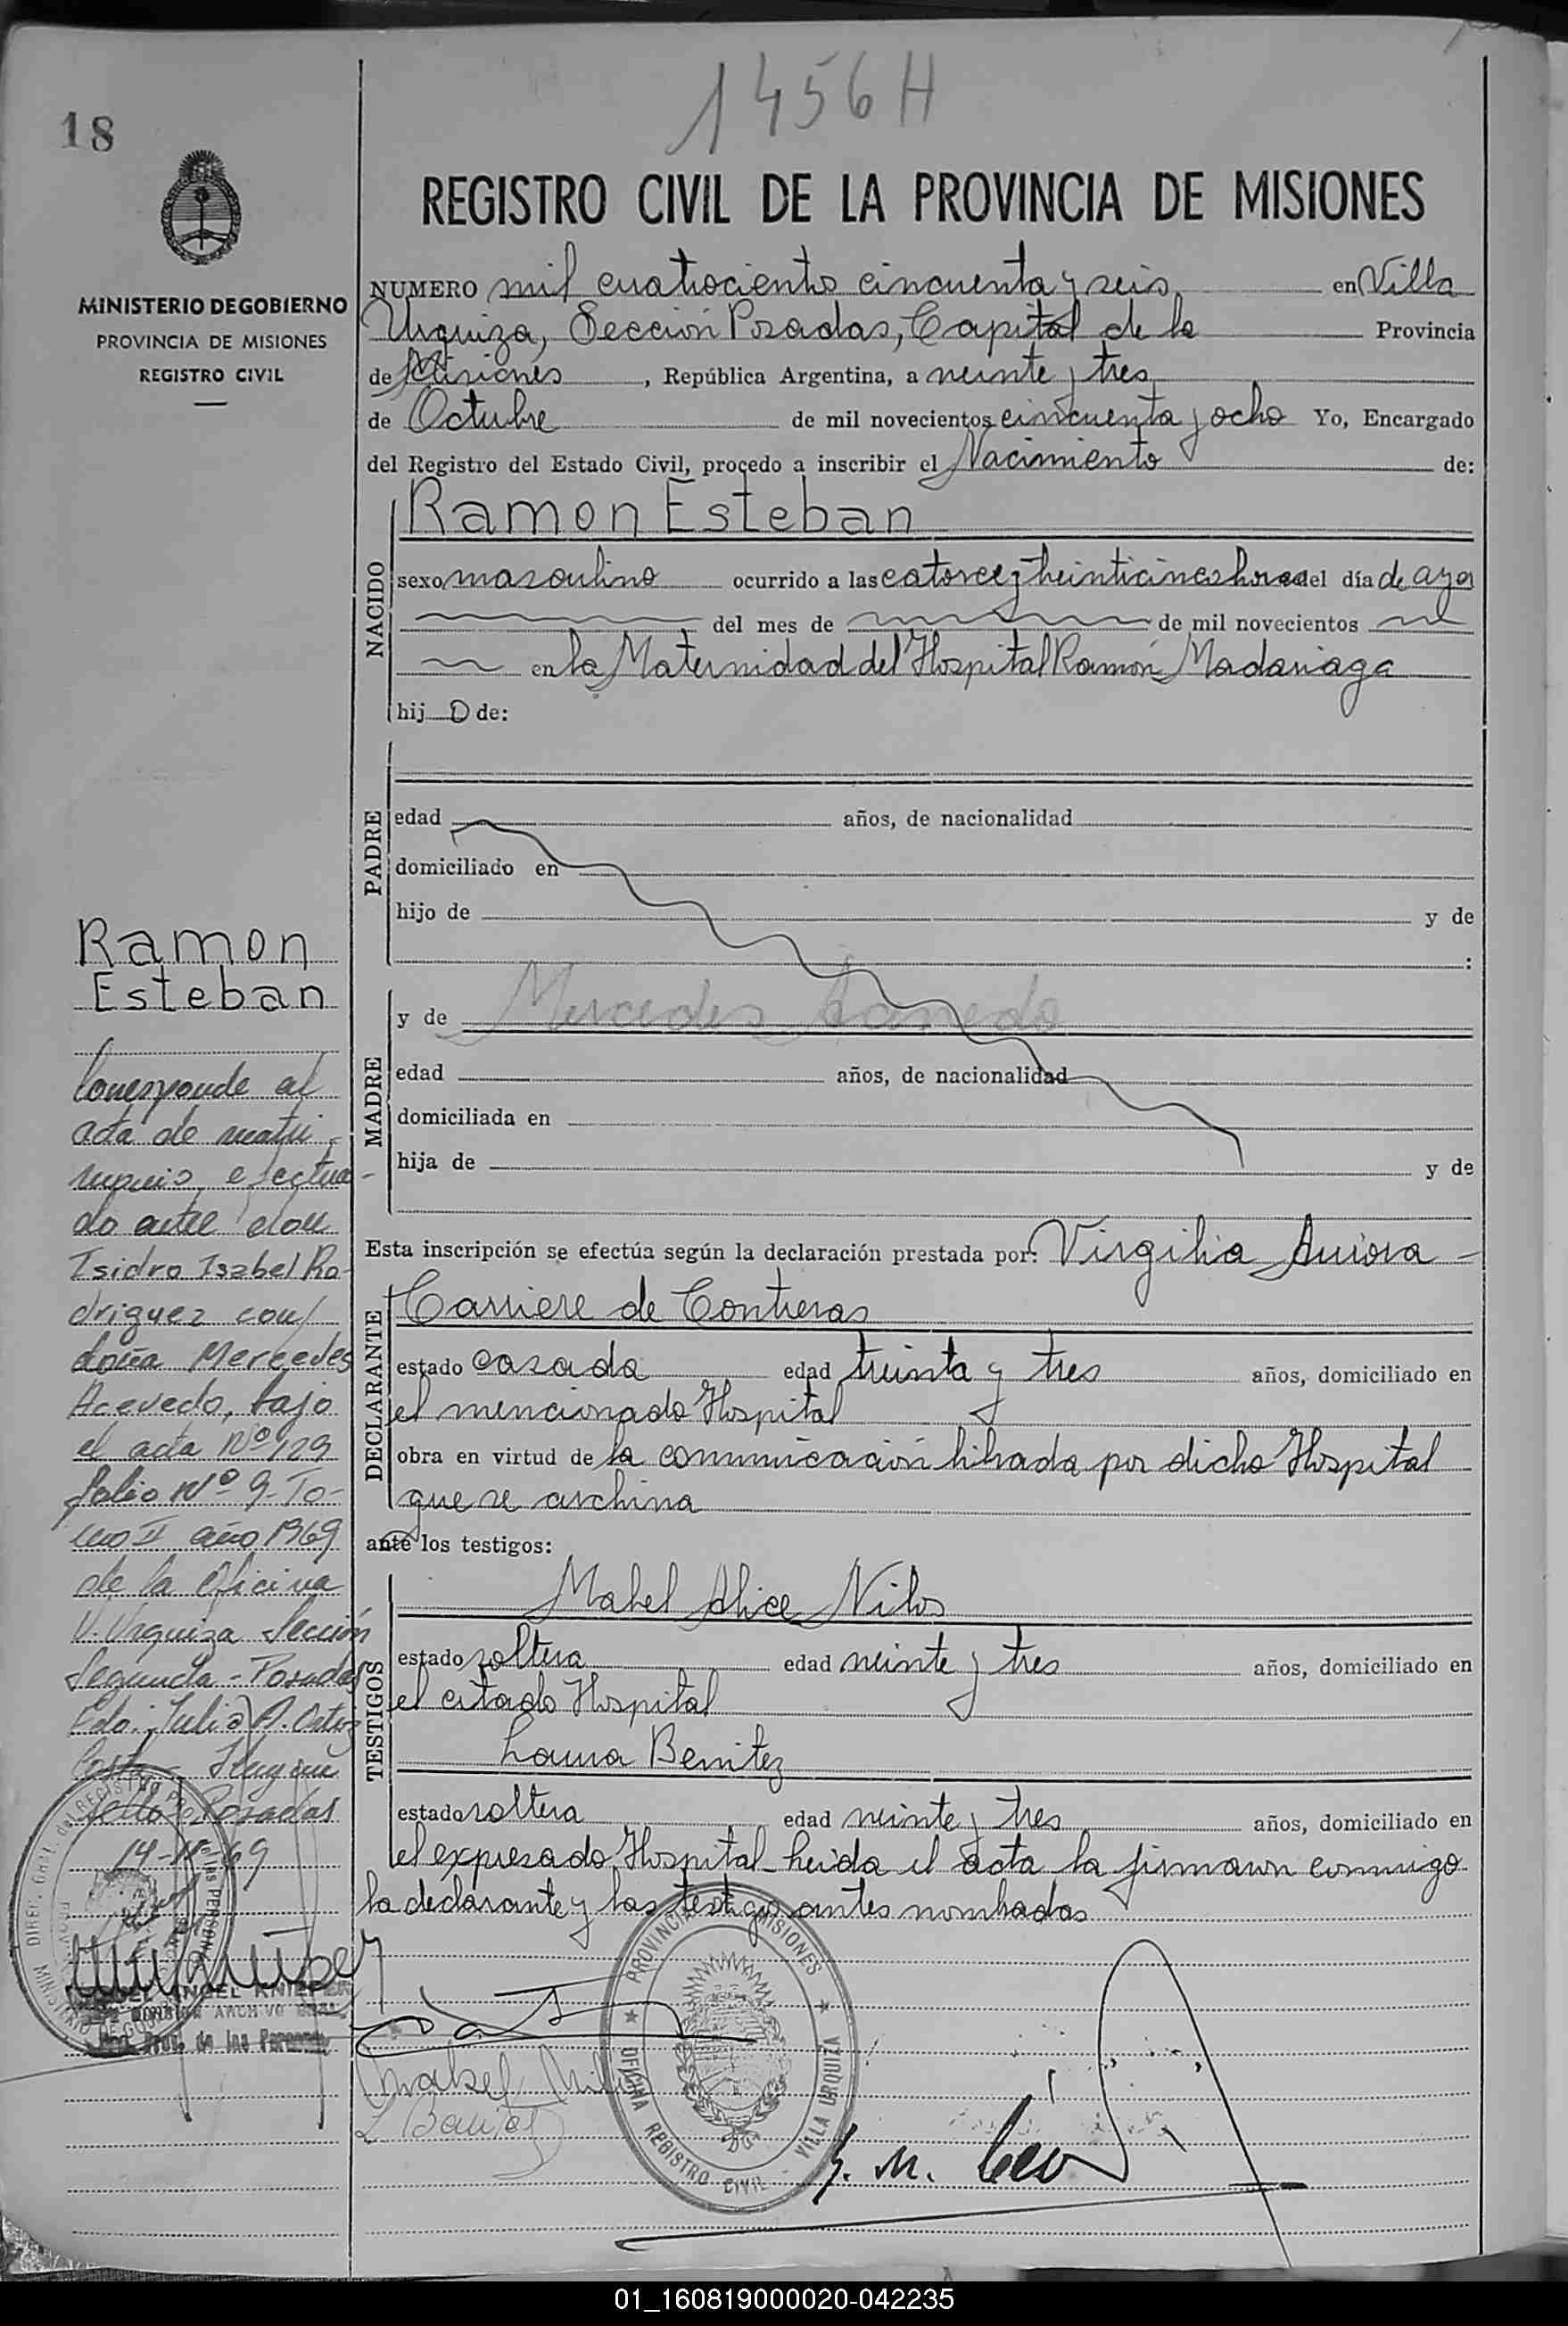 1456H
18
REGISTRO CIVIL DE LA PROVINCIA DE MISIONES
MINISTERIO DE GOBIERNO
PROVINCIA DE MISIONES
REGISTRO CIVIL
NUMERO mil cuatrocientos cincuenta y seis en Villa
Urquiza, Sección Posadas, Capital de la Provincia
de Misiones, República Argentina, a veinte y tres
de Octubre de mil novecientos cincuenta y ocho Yo, Encargado
del Registro del Estado Civil, procedo a inscribir el Nacimiento de:
NACIDO
Ramon Esteban
sexo masculino ocurrido a las catorce y veinticinco horas del día de ayer
del mes de de mil novecientos
en la Maternidad del Hospital Ramón Madariaga
hijo de:
PADRE
edad años, de nacionalidad
domiciliado en
hijo de y de
:
MADRE
y de Mercedes
edad años, de nacionalidad
domiciliada en
hija de y de
Esta inscripción se efectúa según la declaración prestada por: Virgilia Aurora
DECLARANTE
Carriere de Contreras
estado casada edad treinta y tres años, domiciliado en
el mencionado Hospital
obra en virtud de la comunicación librada por dicho Hospital
que se archiva
ante los testigos:
TESTIGOS
Mabel Alice Nilos
estado soltera edad veinte y tres años, domiciliado en
el citado Hospital
Laura Benitez
estado soltera edad veinte y tres años, domiciliado en
el expresado Hospital leida el acta la firmaron conmigo
la declarante y las testigos antes nombradas
Ramon
Esteban
Corresponde al
acta de matri-
monio efectua-
do entre don
Isidro Isabel Ro-
driguez con
doña Mercedes
Acevedo, bajo
el acta Nº 129
folio Nº 9-To-
mo II año 1969
de la Oficina
V. Urquiza Sección
Segunda - Posadas
Fdo: Julio A.
sello Posadas
14-11-69
PROVINCIA MISIONES
OFICINA REGISTRO CIVIL - VILLA URQUIZA
ANGEL KNIEPER
Reg. Prov. de las Personas
Mabel
L Benitez
01_160819000020-042235